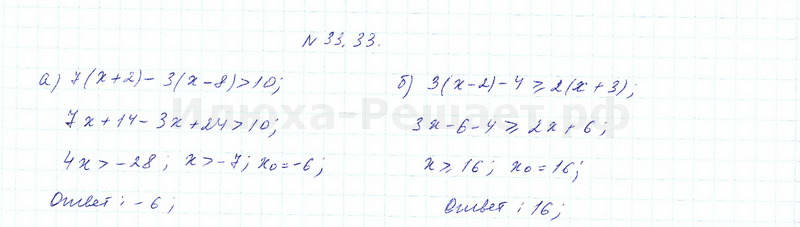 N 33.33.
а) 7(x+2)-3(x-8)>10;
7x+14-3x+24>10;
4x>-28; x>-7; x₀=-6;
Ответ: -6;
б) 3(x-2)-4⩾2(x+3);
3x-6-4⩾2x+6;
x⩾16; x₀=16;
Ответ: 16;
Илюха-Решает.рф